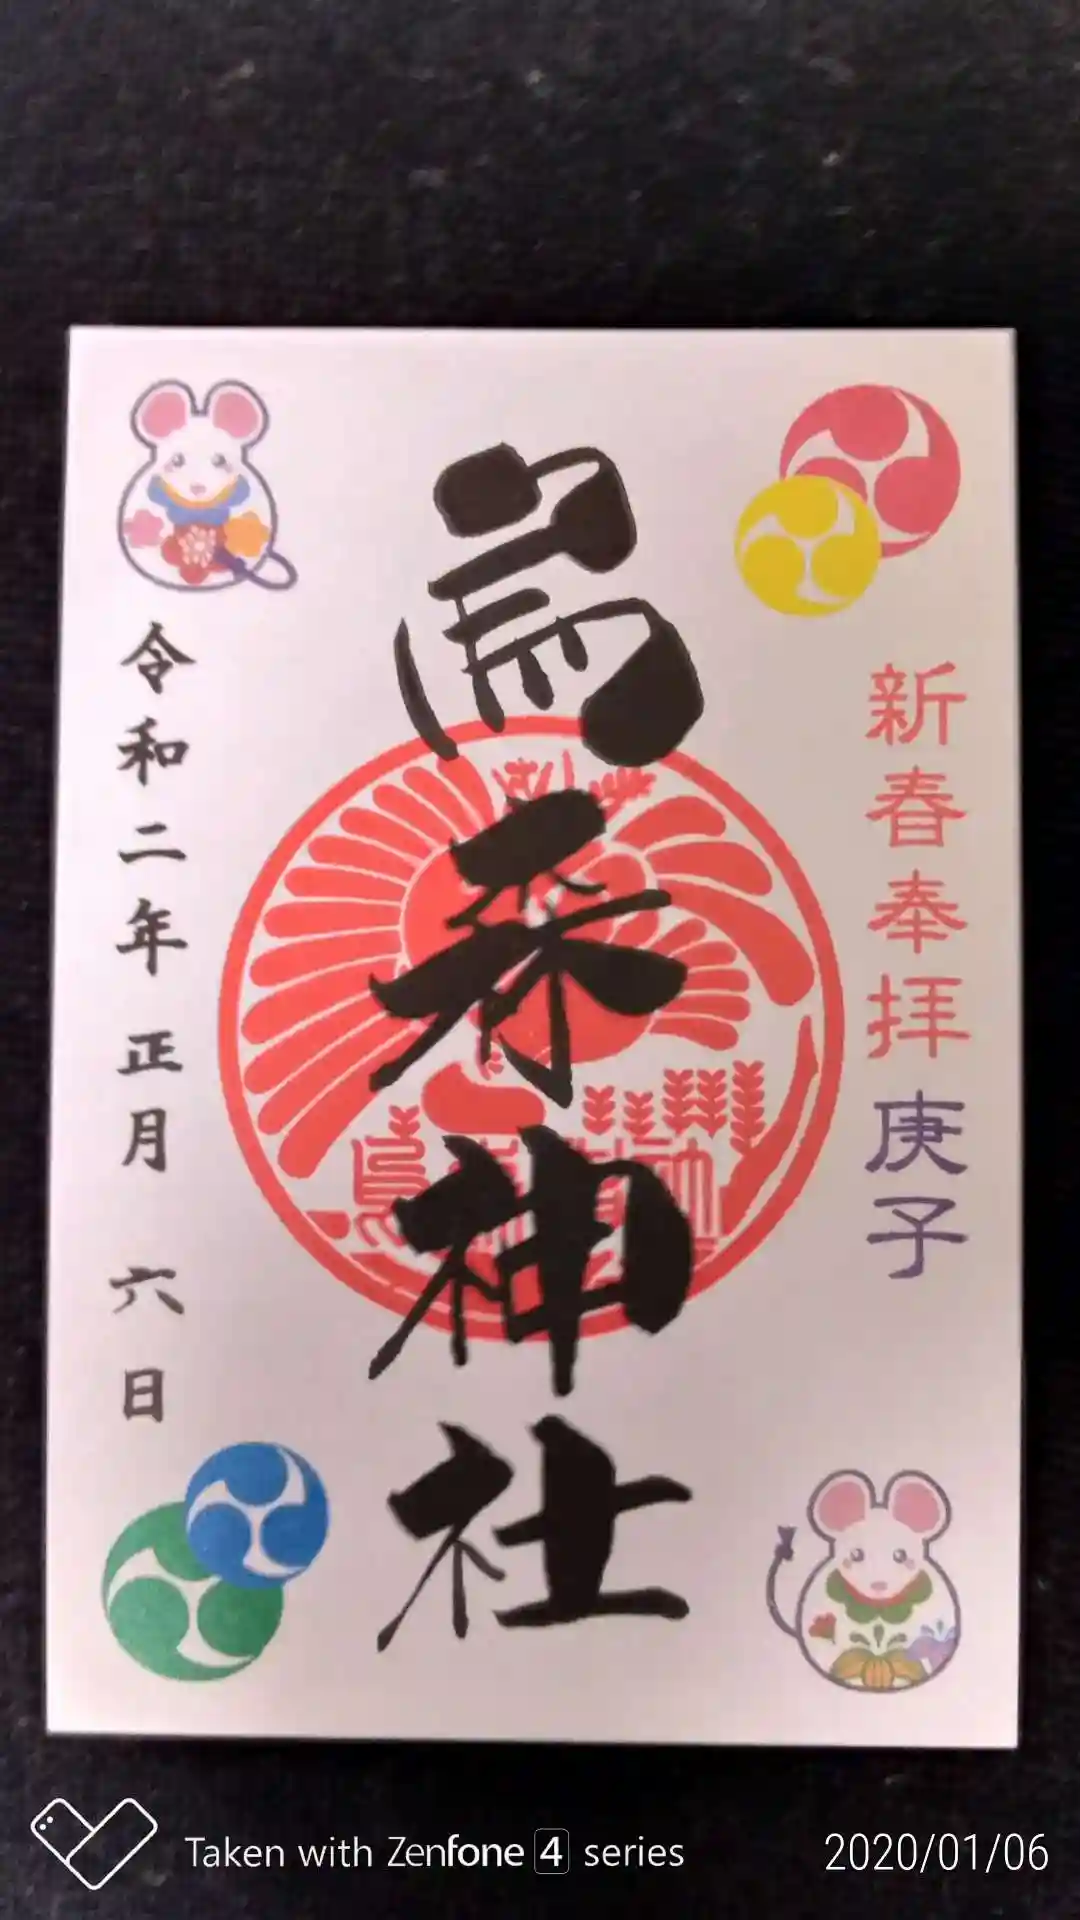 新春奉拝庚子
烏森神社
令和二年 正月 六日
Taken with Zenfone 4 series
2020/01/06